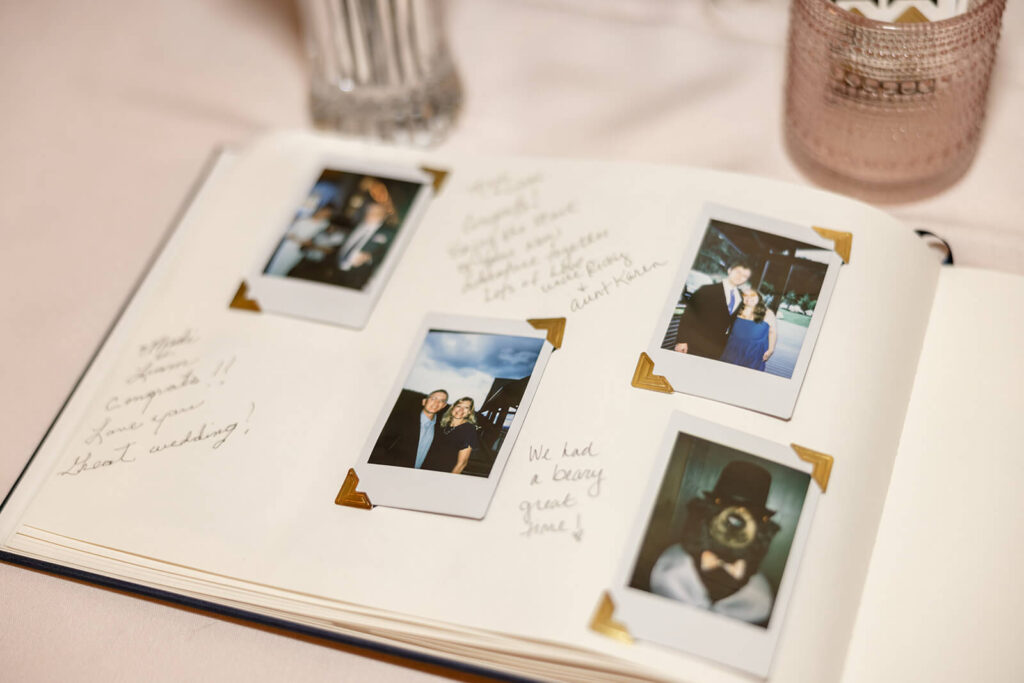 Congrats!
Enjoy the start
of your new
adventure together
Lots of love
Uncle Ricky
+
aunt Karen
Liam
Congrats!!
Love you
Great wedding!
We had
a beary
great
time!